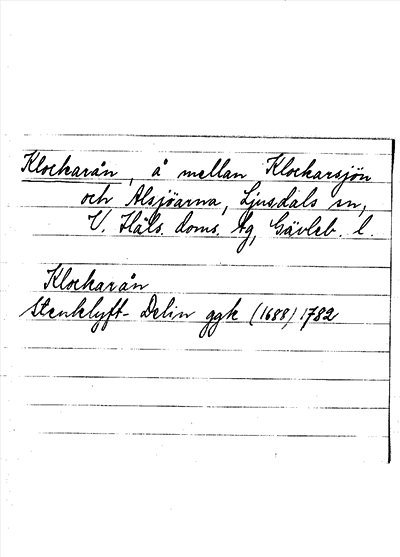 Klockarån, å mellan Klockarsjön
och Alsjöarna, Ljusdals sn,
V. Häls. doms. tg, Gävleb. l.
Klockarån
Stenklyft- Delin ggk (1688) 1782